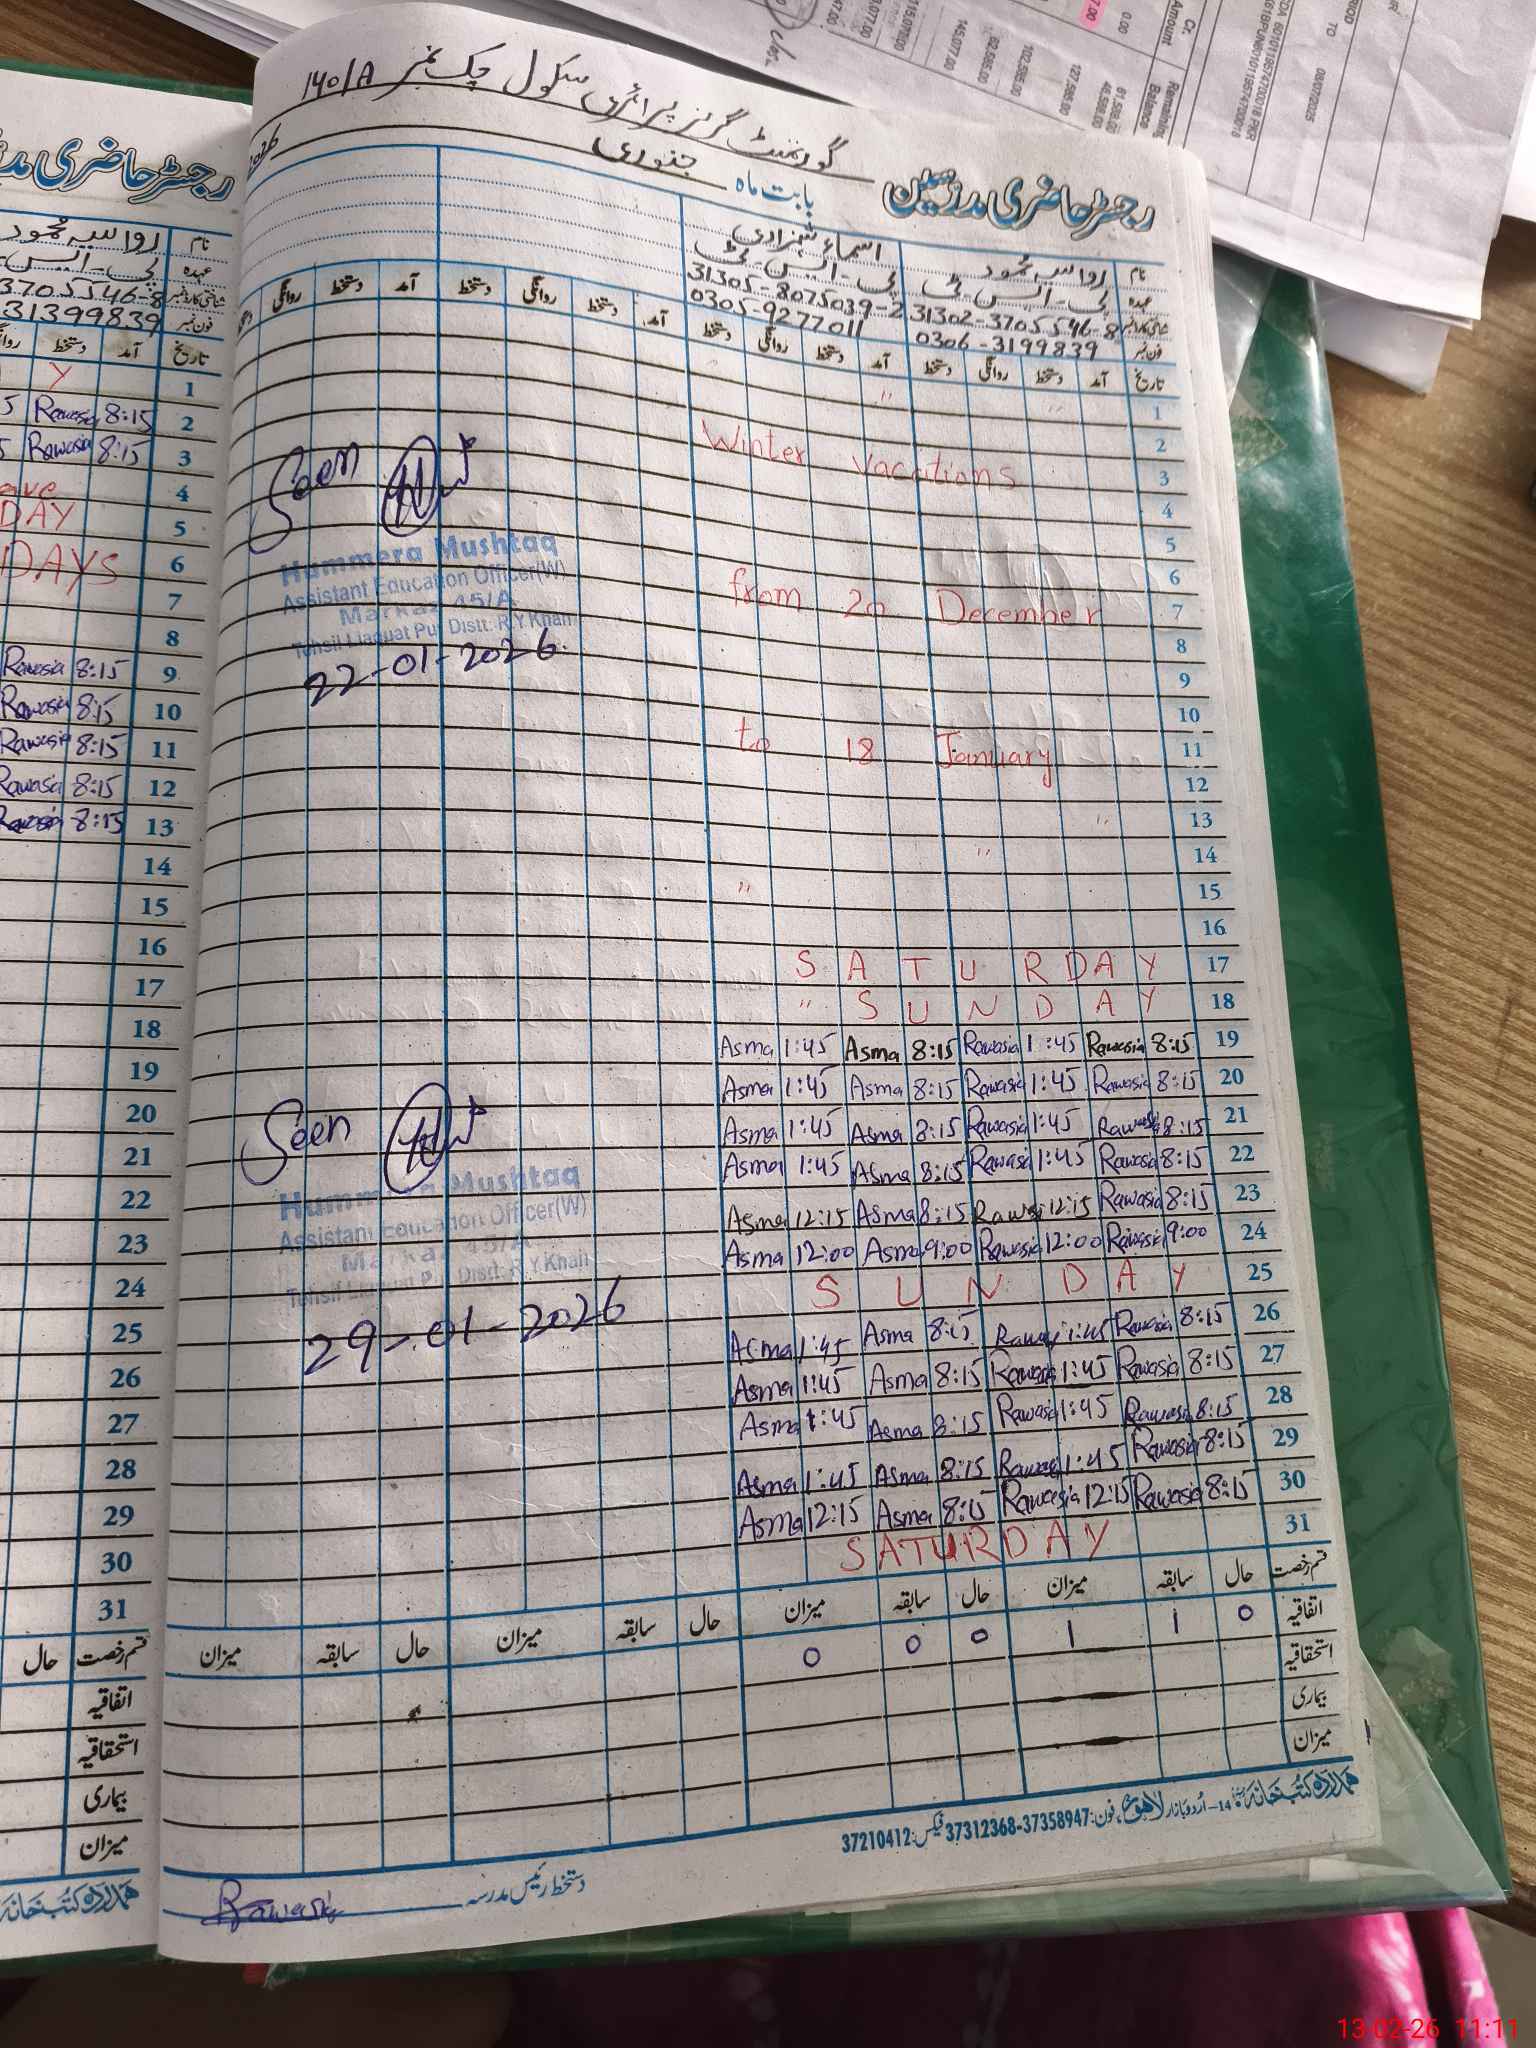 گورنمنٹ گرلز پرائمری سکول چک نمبر 140/A
رجسٹر حاضری مدرسین بابت ماہ جنوری 2026
نام رواسیہ محمود اسماء شہزادی
عہدہ پی-ایس-ٹی پی-ایس-ٹی
شناختی کارڈ نمبر 31302-3705546-8 31305-8075039-2
فون نمبر 0306-3199839 0305-9277011
تاریخ آمد دستخط روانگی دستخط آمد دستخط روانگی دستخط آمد دستخط روانگی دستخط آمد دستخط روانگی
1 " "
2
3 Winter vacations
4
5
6
7 from 20 December
8
9
10
11 to 18 January
12
13 "
14 "
15 "
16
17 SATURDAY
18 " SUNDAY
19 8:15 Rawasia 1:45 Rawasia 8:15 Asma 1:45 Asma
20 8:15 Rawasia 1:45 Rawasia 8:15 Asma 1:45 Asma
21 8:15 Rawasia 1:45 Rawasia 8:15 Asma 1:45 Asma
22 8:15 Rawasia 1:45 Rawasia 8:15 Asma 1:45 Asma
23 8:15 Rawasia 12:15 Rawasi 8:15 Asma 12:15 Asma
24 9:00 Rawasia 12:00 Rawasia 9:00 Asma 12:00 Asma
25 SUNDAY
26 8:15 Rawasia 1:45 8:15 Asma 1:45 Asma
27 8:15 Rawasia 1:45 Rawasia 8:15 Asma 1:45 Asma
28 8:15 Rawasia 1:45 Rawasia 8:15 Asma 1:45 Asma
29 8:15 Rawasia 1:45 8:15 Asma 1:45 Asma
30 8:15 Rawasia 12:15 Rawasia 8:15 Asma 12:15 Asma
31 SATURDAY
قسم رخصت حال سابقہ میزان حال سابقہ میزان حال سابقہ میزان حال سابقہ میزان
اتفاقیہ 0 1 1 0 0 0
استحقاقیہ
بیماری
میزان
ہمدرد کتب خانہ 14-اردو بازار لاہور، فون: 37358947-37312368 فیکس: 37210412
دستخط رئیس مدرسہ Rawasia
Seen
Hummera Mushtaq
Assistant Education Officer(W)
Markaz 45/A
Tehsil Liaquat Pur Distt: R.Y.Khan
22-01-2026
Seen
Hummera Mushtaq
Assistant Education Officer(W)
Markaz 45/A
Tehsil Liaquat Pur Distt: R.Y.Khan
29-01-2026
رجسٹر حاضری
نام رواسیہ محمود
عہدہ پی-ایس-
شناختی کارڈ نمبر 3705546-8
فون نمبر 31399839
تاریخ آمد دستخط
1 Y
2 8:15 Rawasia
3 8:15 Rawasia
4
5 DAY
6 DAYS
7
8
9 8:15 Rawasia
10 8:15 Rawasia
11 8:15 Rawasia
12 8:15 Rawasia
13 8:15 Rawasia
14
15
16
17
18
19
20
21
22
23
24
25
26
27
28
29
30
31
قسم رخصت حال
اتفاقیہ
استحقاقیہ
بیماری
میزان
ہمدرد کتب خانہ
08/07/2025
TO
Cr. Amount
Remaining Balance
0.00
127,585.00
102,585.00
145,077.00
13-02-26 11:11